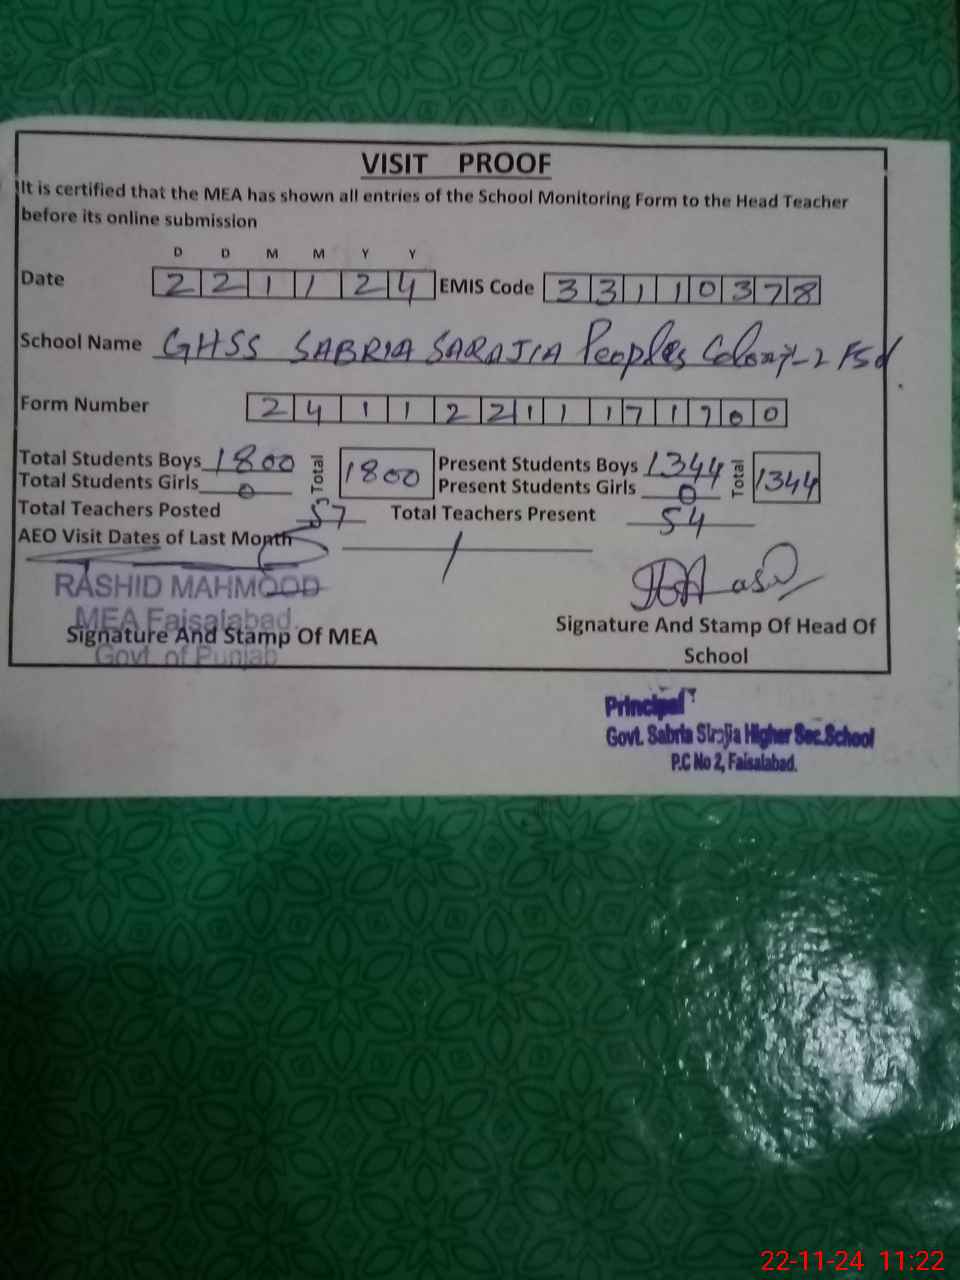 VISIT PROOF
It is certified that the MEA has shown all entries of the School Monitoring Form to the Head Teacher
before its online submission
D D M M Y Y
Date 2 2 1 1 2 4 EMIS Code 3 3 1 1 0 3 7 8
School Name GHSS SABRIA SARAJIA Peoples Colony-2 Fsd
Form Number 2 4 1 1 2 2 1 1 1 7 1 7 0 0
Total Students Boys 1800 Total 1800 Present Students Boys 1344 Total 1344
Total Students Girls 0 Present Students Girls 0
Total Teachers Posted 57 Total Teachers Present 54
AEO Visit Dates of Last Month /
RASHID MAHMOOD
MEA Faisalabad.
Signature And Stamp Of MEA
Govt. of Punjab
Signature And Stamp Of Head Of
School
Principal
Govt. Sabria Sirajia Higher Sec.School
P.C No 2, Faisalabad.
22-11-24 11:22